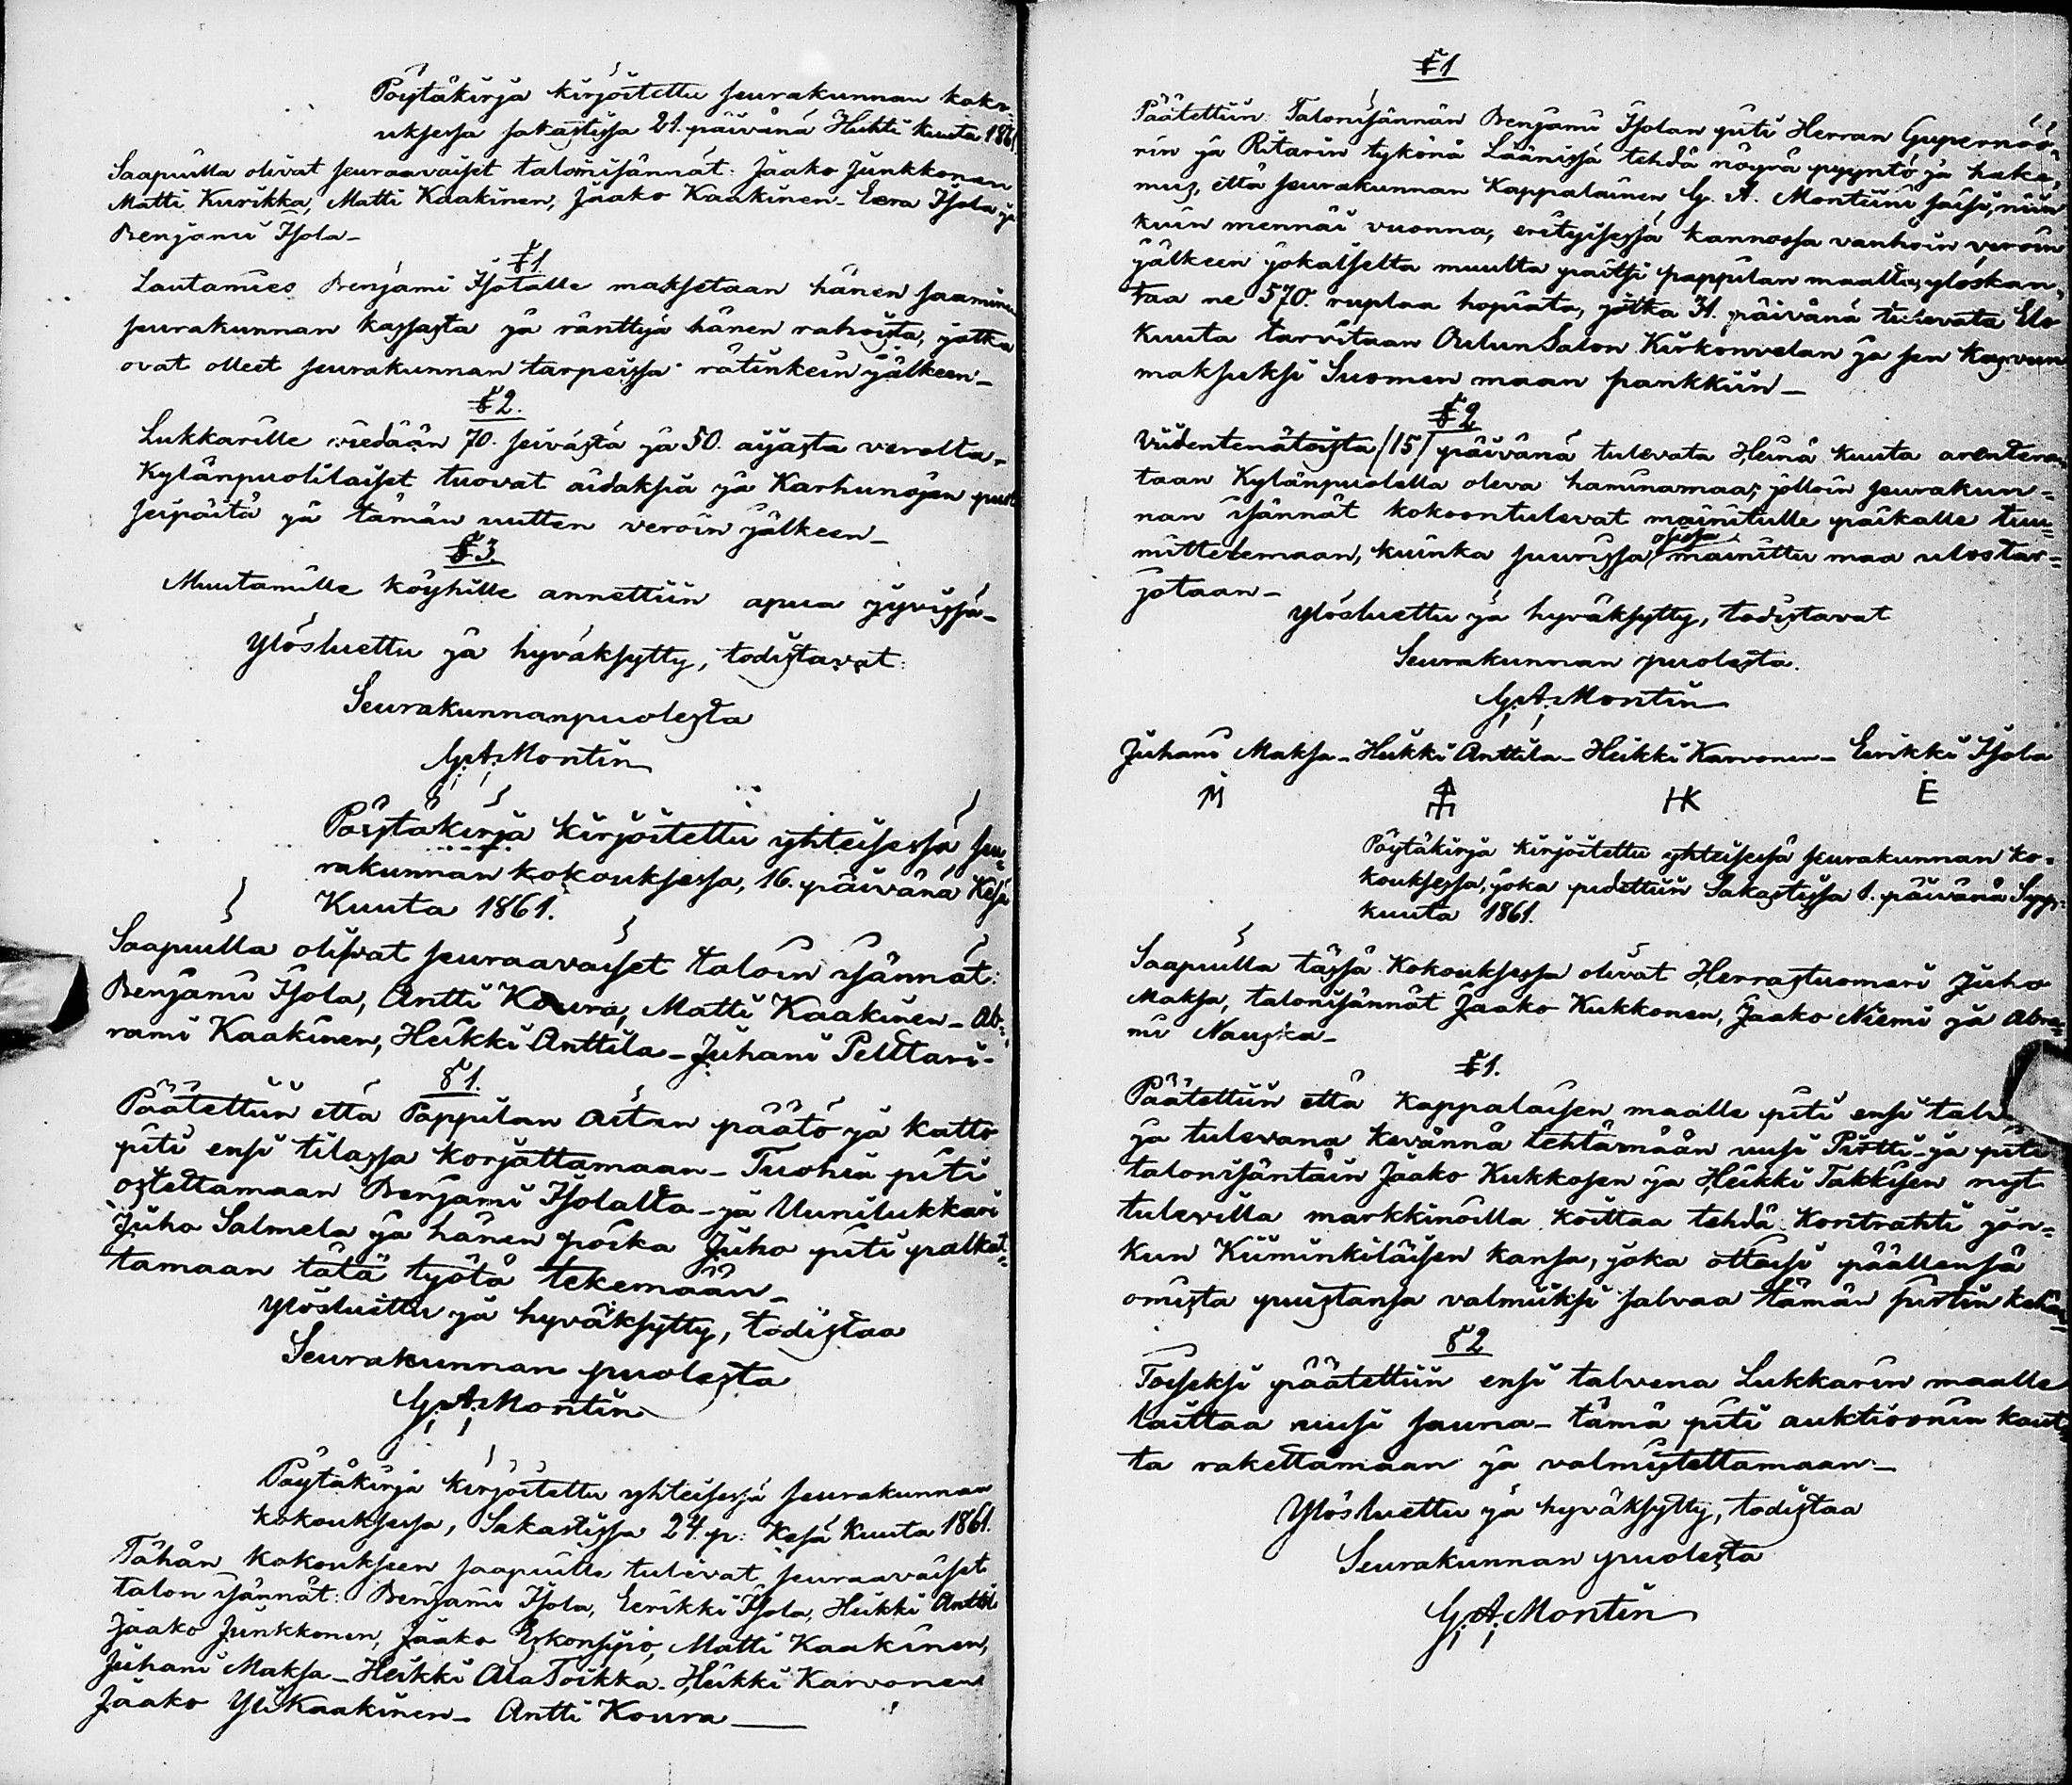 Pöytäkirja kirjoitettu seurakunnan koko-
uksessa sakastissa 21. päivänä Huhti kuuta 1861.
Saapuilla olivat seuraavaiset talonisännät: Jaako Junkkonen
Matti Kurikka, Matti Kaakinen, Jaako Kaakinen - Eera Isola ja
Benjami Isola -
§ 1.
Lautamies Benjami Isolalle maksetaan hänen saaminen
seurakunnan kassasta ja ränttyä hänen rahoista, jotka
ovat olleet seurakunnan tarpeissa rätinkein jälkeen -
§ 2.
Lukkarille viedään 70. seivästä ja 50. aijasta verolta -
Kylänpuolilaiset tuovat aidaksia ja Karhunojan puoli
seipäitä ja tämän uutten veroin jälkeen -
§ 3.
Muutamille köyhille annettiin apua jyvissä -
Ylösluettu ja hyväksytty, todistavat:
Seurakunnanpuolesta
G. A. Montin
Pöytäkirja kirjoitettu yhteisessä seu=
rakunnan kokouksessa, 16. päivänä Kesä
Kuuta 1861.
Saapuilla olivat seuraavaiset taloin isännät:
Benjami Isola, Antti Koura, Matti Kaakinen - Ab=
rami Kaakinen, Heikki Anttila - Juhani Pelttari -
§ 1.
Päätettiin että Pappilan Aitan päätö ja katto
piti ensi tilassa korjattamaan - Tuohia piti
ostettamaan Benjami Isolalta - ja Unilukkari
Juho Salmela ja hänen poika Juho piti palkat=
tamaan tätä työtä tekemään -
Ylösluettu ja hyväksytty, todistaa
Seurakunnan puolesta
G. A. Montin
Pöytäkirja kirjoitettu yhteisessä seurakunnan
kokouksessa, Sakastissa 24. p: Kesä Kuuta 1861.
Tähän kokoukseen saapuille tulivat seuraavaiset
talon isännät: Benjami Isola, Eerikki Isola, Heikki Anttil
Jaako Junkkonen, Jaako Matti Kaakinen,
Juhani Maksa - Heikki AlaToikka - Heikki Karvonen
Jaako YliKaakinen - Antti Koura —
§ 1
Päätettiin Talonisännän Benjami Isolan piti Herran Gupernöö-
rin ja Ritarin tykönä Läänissä tehdä nöyrä pyyntö ja hake=
mus, että seurakunnan Kappalainen G. A. Montiini saisi, niin
kuin mennäi vuonna, erityisessä kannossa vanhoin veroin
jälkeen jokaiselta muulta paitsi pappilan maalta, ylöskan=
taa ne 570. ruplaa hopiata, jotka 31. päivänä tulevata Elo
kuuta tarvitaan OulunSalon Kirkonvelan ja sen kasvun
maksuksi Suomen maan pankkiin -
§ 2
Viidentenätoista /15/ päivänä tulevata Heinä kuuta arenteera
taan Kylänpuolella oleva haminamaa; jolloin seurakun=
nan isännät kokoontulevat mainitulle paikalle tuu=
mittelemaan, kuinka suurissa osissa mainittu maa ulostar=
jotaan -
Ylösluettu ja hyväksytty, todistavat
Seurakunnan puolesta.
G. A. Montin
Juhani Maksa - Heikki Anttila - Heikki Karvonen - Eerikki Isola
M HK E
Pöytäkirja kirjoitettu yhteisessä seurakunnan ko=
kouksessa, joka pidettiin Sakastissa 1. päivänä Syys
kuuta 1861.
Saapuilla tässä Kokouksessa olivat Herrastuomari Juho
Maksa, talonisännät Jaako Kukkonen, Jaako Niemi ja Abra=
mi Nauska -
§ 1.
Päätettiin että Kappalaisen maalle piti ensi talv
ja tulevana kevännä tehtämään uusi Pirtti - ja piti
talonisäntäin Jaako Kukkosen ja Heikki Takkisen nyt
tulevilla markkinoilla koittaa tehdä Kontrahti jon=
kun Kiiminkiläisen kansa, joka ottaisi päällensä
omista puistansa valmiiksi salvaa tämän pirtin kehän=
§ 2
Toiseksi päätettiin ensi talvena Lukkarin maalle
laittaa uusi sauna - tämä piti auktioonin kaut=
ta rakettamaan ja valmistettamaan -
Ylösluettu ja hyväksytty, todistaa
Seurakunnan puolesta
G. A. Montin